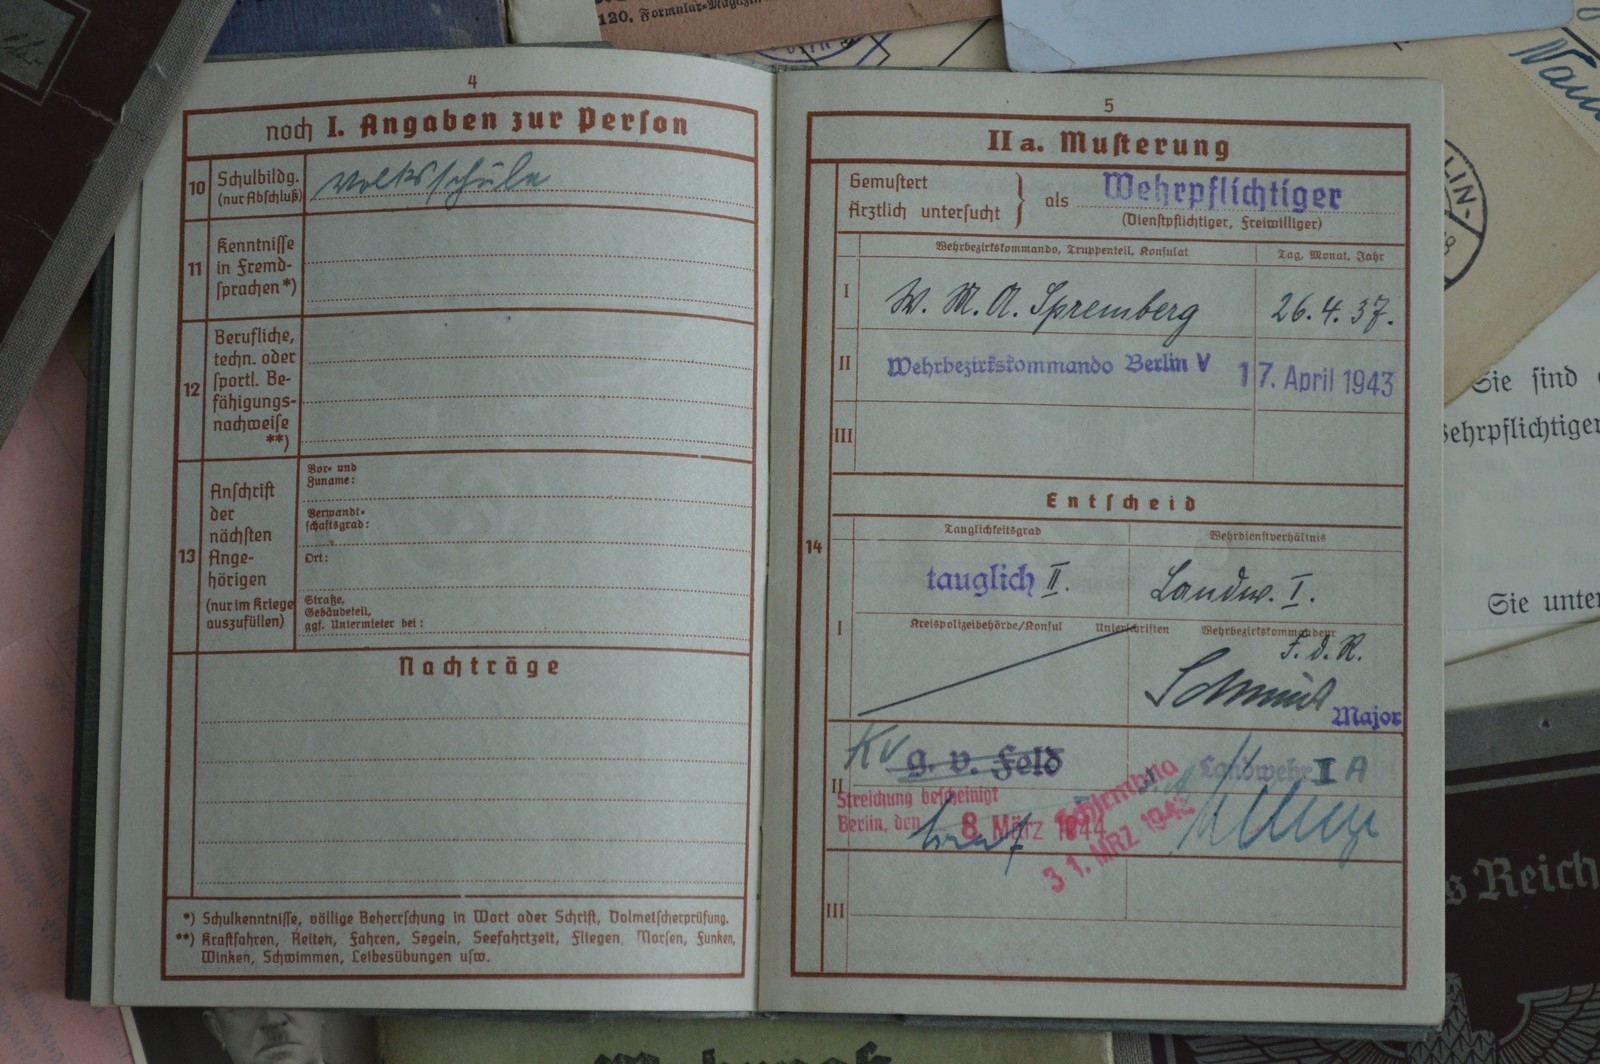 120, Formular-Magazin
4
noch I. Angaben zur Person
10 Schulbildg. (nur Abschluß) Volksschule
11 Kenntnisse in Fremd-sprachen *)
12 Berufliche, techn. oder sportl. Be-fähigungs-nachweise **)
13 Anschrift der nächsten Ange-hörigen (nur im Kriege auszufüllen)
Vor- und Zuname:
Verwandt-schaftsgrad:
Ort:
Straße, Gebäudeteil, ggf. Untermieter bei:
Nachträge
*) Schulkenntnisse, völlige Beherrschung in Wort oder Schrift, Dolmetscherprüfung.
**) Kraftfahren, Reiten, Fahren, Segeln, Seefahrtzeit, Fliegen, Morsen, Funken,
Winken, Schwimmen, Leibesübungen usw.
5
II a. Musterung
Gemustert
Ärztlich untersucht } als Wehrpflichtiger
(Dienstpflichtiger, Freiwilliger)
Wehrbezirkskommando, Truppenteil, Konsulat Tag, Monat, Jahr
I W. M. A. Spremberg 26.4.37.
II Wehrbezirkskommando Berlin V 17. April 1943
III
Entscheid
14
Tauglichkeitsgrad Wehrdienstverhältnis
tauglich II. Landw. I.
I Kreispolizeibehörde/Konsul Unterschriften Wehrbezirkskommandeur
F. d. R.
Major
Kv g. v. Feld Landwehr I A
II
Streichung bescheinigt
Berlin, den 8. März 1944
31. MRZ 1943
III
LIN-
Sie sind
Wehrpflichtiger
Sie unter
s Reich